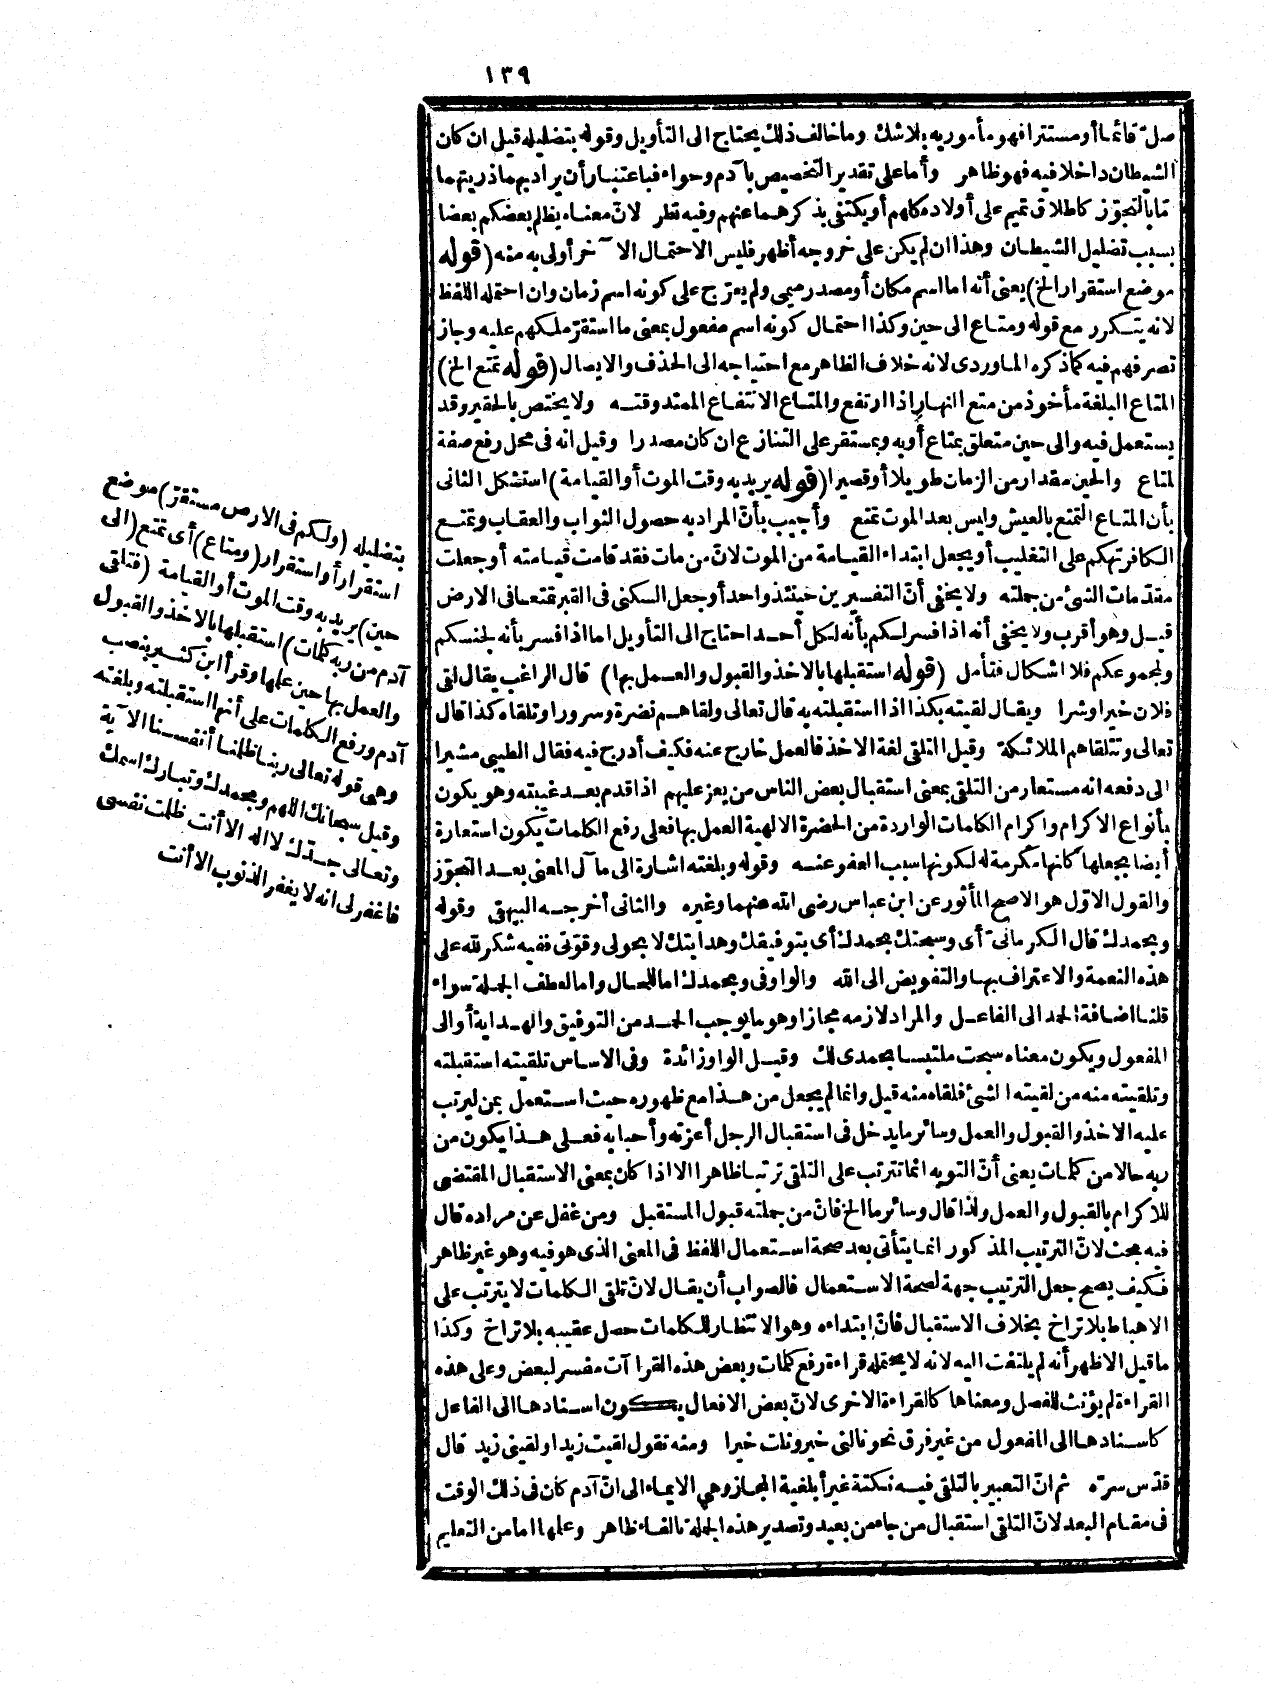 ١٣٩
صلّ قائما أو مستترا فهو مأمور به بلا شك وما خالف ذلك يحتاج الى التأويل وقوله بتضليله قيل ان كان
الشيطان داخلا فيه فهو ظاهر وأما على تقدير التخصيص بآدم وحواء فباعتبار أن يراد بهما ذريتهما
امّا بالتجوّز كاطلاق تميم على أولاده كلهم أو يكتفى بذكرهما عنهم وفيه نظر لانّ معناه يظلم بعضكم بعضا
بسبب تضليل الشيطان وهذا ان لم يكن على خروجه أظهر فليس الاحتمال الآخر أولى به منه (قوله
موضع استقرار الخ) يعنى أنه اما اسم مكان أو مصدر ميمى ولم يعرّج على كونه اسم زمان وان احتمله اللفظ
لانه يتكرر مع قوله ومتاع الى حين وكذا احتمال كونه اسم مفعول بمعنى ما استقرّ ملككم عليه وجاز
تصرفهم فيه كما ذكره الماوردى لانه خلاف الظاهر مع احتياجه الى الحذف والايصال (قوله تمتع الخ)
المتاع البلغة مأخوذ من متع النهار اذا ارتفع والمتاع الانتفاع الممتد وقته ولا يختص بالحقير وقد
يستعمل فيه والى حين متعلق بمتاع أو به وبمستقر على التنازع ان كان مصدرا وقيل انه فى محل رفع صفة
لمتاع والحين مقدار من الزمان طويلا أو قصيرا (قوله يريد به وقت الموت أو القيامة) استشكل الثانى
بأن المتاع التمتع بالعيش وليس بعد الموت تمتع وأجيب بأنّ المراد به حصول الثواب والعقاب وتمتع
الكافر تهكم على التغليب أو يجعل ابتداء القيامة من الموت لانّ من مات فقد قامت قيامته أو جعلت
مقدّمات الشئ من جملته ولا يخفى أنّ التفسيرين حينئذ واحد أو جعل السكنى فى القبر تمتعا فى الارض
قيل وهو أقرب ولا يخفى أنه اذا فسر لكم بأنه لكل أحد احتاج الى التأويل اما اذا فسر بأنه لجنسكم
ولمجموعكم فلا اشكال فتأمل (قوله استقبلها بالاخذ والقبول والعمل بها) قال الراغب يقال لقى
فلان خيرا وشرا ويقال لقيته بكذا اذا استقبلته به قال تعالى ولقاهم نضرة وسرورا وتلقاه كذا قال
تعالى وتتلقاهم الملائكة وقيل التلقى لغة الاخذ فالعمل خارج عنه فكيف أدرج فيه فقال الطيبى مشيرا
الى دفعه انه مستعار من التلقى بمعنى استقبال بعض الناس من يعز عليهم اذا قدم بعد غيبته وهو يكون
بأنواع الاكرام واكرام الكلمات الواردة من الحضرة الالهية العمل بها فعلى رفع الكلمات يكون استعارة
أيضا بجعلها كأنها مكرمة له لكونها سبب العفو عنه وقوله وبلغته اشارة الى مآل المعنى بعد التجوّز
والقول الاوّل هو الاصح المأثور عن ابن عباس رضى الله عنهما وغيره والثانى أخرجه البيهقى وقوله
وبحمدك قال الكرمانىّ أى وسبحتك بحمدك أى بتوفيقك وهدايتك لا بحولى وقوّتى ففيه شكر لله على
هذه النعمة والاعتراف بها والتفويض الى الله والواو فى وبحمدك اما للحال واما لعطف الجملة سواء
قلنا اضافة الحمد الى الفاعل والمراد لازمه مجازا وهو ما يوجب الحمد من التوفيق والهداية أو الى
المفعول ويكون معناه سبحت ملتبسا بحمدى لك وقيل الواو زائدة وفى الاساس تلقيته استقبلته
وتلقيته منه من لقيته الشئ فلقاه منه قيل وانما لم يجعل من هذا مع ظهوره حيث استعمل بمن ليرتب
عليه الاخذ والقبول والعمل وسائر ما يدخل فى استقبال الرجل أعزته وأحبابه فعلى هذا يكون من
ربه حالا من كلمات يعنى أنّ التوبة انما تترتب على التلقى ترتبا ظاهرا الا اذا كان بمعنى الاستقبال المقتضى
للاكرام بالقبول والعمل ولذا قال وسائر ما الخ فانّ من جملته قبول المستقبل ومن غفل عن مراده قال
فيه بحث لانّ الترتيب المذكور انما يتأتى بعد صحة استعمال اللفظ فى المعنى الذى هو فيه وهو غير ظاهر
فكيف يصح جعل الترتيب جهة لصحة الاستعمال فالصواب أن يقال لانّ تلقى الكلمات لا يترتب على
الاهباط بلا تراخ بخلاف الاستقبال فانّ ابتداءه وهو الانتظار للكلمات حصل عقيبه بلا تراخ وكذا
ما قيل الاظهر أنه لم يلتفت اليه لانه لا يحتمله قراءة رفع كلمات وبعض هذه القراآت مفسر لبعض وعلى هذه
القراءة لم يؤنث للفصل ومعناها كالقراءة الاخرى لانّ بعض الافعال يكون اسنادها الى الفاعل
كاسنادها الى المفعول من غير فرق نحو نالنى خير ونلت خيرا ومنه تقول لقيت زيدا ولقينى زيد قال
قدّس سرّه ثم انّ التعبير بالتلقى فيه نكتة غير أبلغية المجاز وهى الايماء الى انّ آدم كان فى ذلك الوقت
فى مقام البعد لانّ التلقى استقبال من جاء من بعيد وتصدير هذه الجملة بالفاء ظاهر وعلمها اما من التعليم
بتضليله (ولكم فى الارض مستقرّ) موضع
استقرار أو استقرار (ومتاع) أى تمتع (الى
حين) يريد به وقت الموت أو القيامة (فتلقى
آدم من ربه كلمات) استقبلها بالاخذ والقبول
والعمل بها حين علمها وقرأ ابن كثير بنصب
آدم ورفع الكلمات على أنها استقبلته وبلغته
وهى قوله تعالى ربنا ظلمنا أنفسنا الآية
وقيل سبحانك اللهم وبحمدك وتبارك اسمك
وتعالى جدّك لا اله الا أنت ظلمت نفسى
فاغفر لى انه لا يغفر الذنوب الا أنت